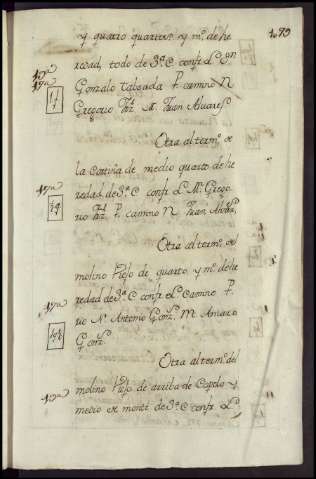 1.079
y quarto quarteron y m.º de he
redad, todo de 3.ª C. confr. L. Dn
Gonzalo taboada P. camino N
Gregorio Frz M. Juan Alvares
Otra al term.º de
la Cortiña de medio quarto de he
redad de 3.ª C confr. L. M. Grego
rio Frz P. camino N Juan Alvar.
Otra al term.º del
molino de quarto y m.º de he
redad de 3.ª C confr. L. Camino P.
rio N. Antonio Gonz. M. Amaro
Gonz.
Otra al term.º del
molino de arriba de y
medio de monte de 3.ª C confr. L.